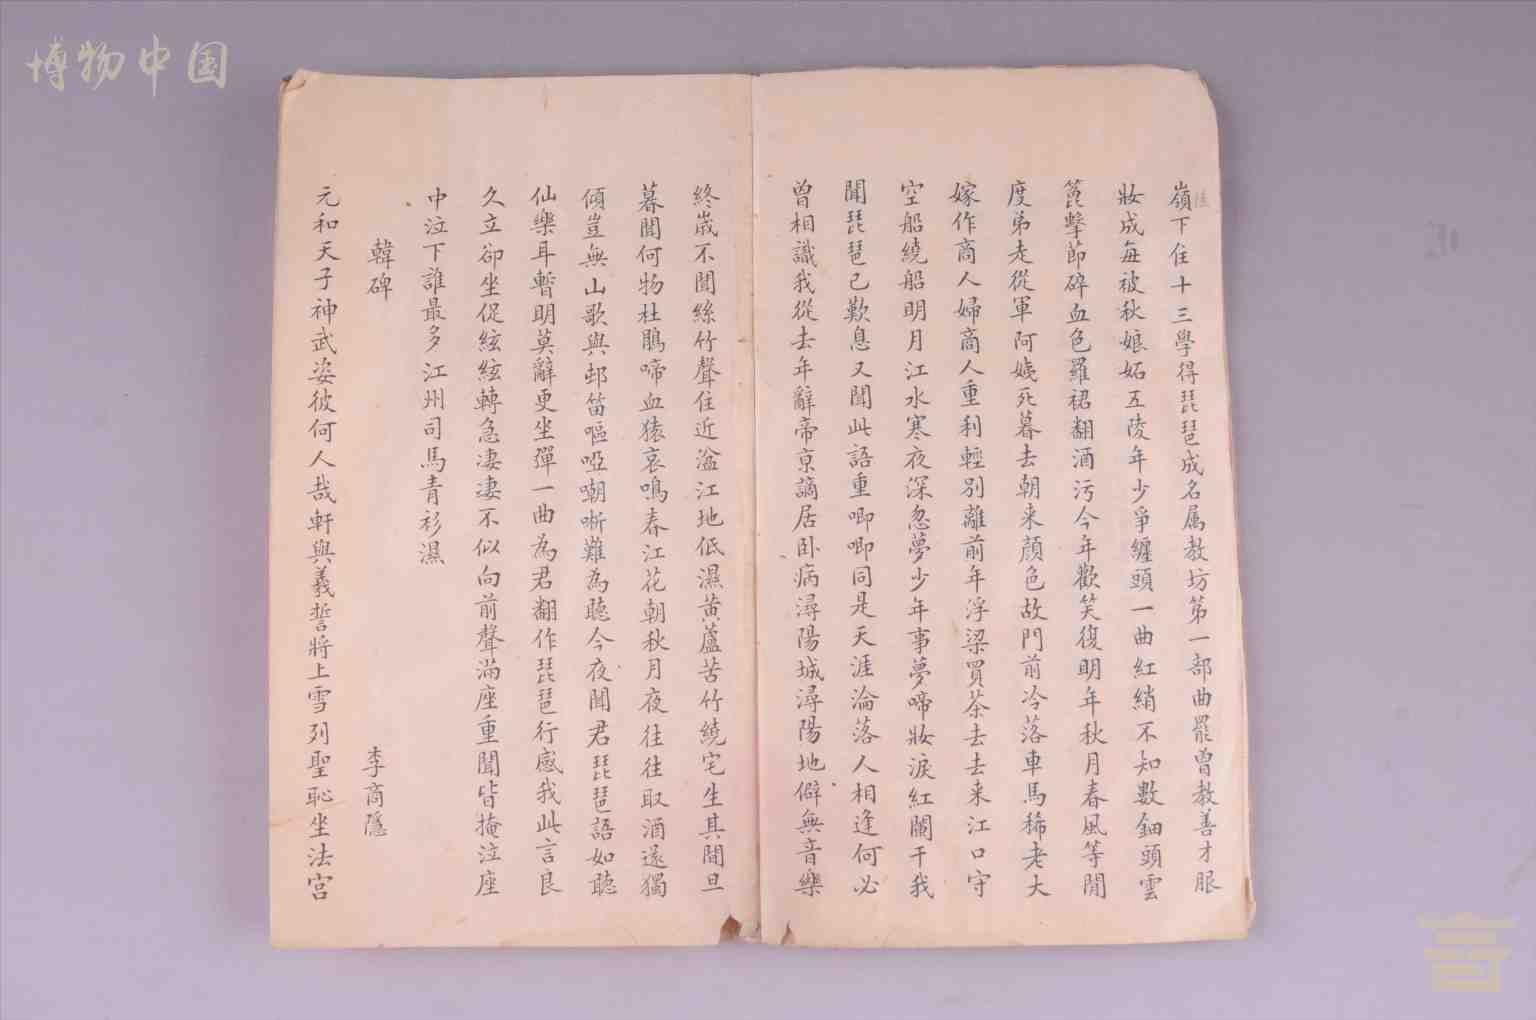 博物中国
嶺下住十三學得琵琶成名属教坊第一部曲罷曾教善才服
妝成每被秋娘妬五陵年少爭纏頭一曲紅綃不知數鈿頭雲
篦擊節碎血色羅裙翻酒污今年歡笑復明年秋月春風等閒
度弟走從軍阿姨死暮去朝来顏色故門前冷落車馬稀老大
嫁作商人婦商人重利輕别離前年浮梁買茶去去来江口守
空船繞船明月江水寒夜深忽夢少年事夢啼妝淚紅闌干我
聞琵琶已歎息又聞此語重唧唧同是天涯淪落人相逢何必
曾相識我從去年辭帝京謫居卧病潯陽城潯陽地僻無音樂
終嵗不聞絲竹聲住近湓江地低濕黄蘆苦竹繞宅生其間旦
暮聞何物杜鵑啼血猿哀鳴春江花朝秋月夜往往取酒還獨
傾豈無山歌與邨笛嘔啞嘲哳難為聽今夜聞君琵琶語如聽
仙樂耳暫明莫辭更坐彈一曲為君翻作琵琶行感我此言良
久立卻坐促絃絃轉急凄凄不似向前聲滿座重聞皆掩泣座
中泣下誰最多江州司馬青衫濕
韓碑 李商隱
元和天子神武姿彼何人哉軒與羲誓將上雪列聖恥坐法宫